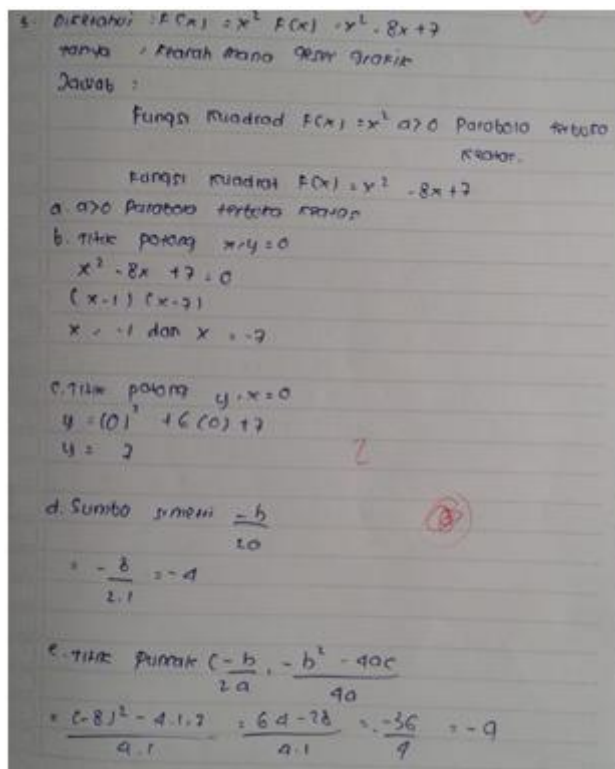 3. Diketahui : F(x) = x² F(x) = x² - 8x + 7
tanya : Kearah mana geser grafik
Jawab :
Fungsi Kuadrad F(x) = x² a>0 Parabola terbuka
keatas.
Fungsi Kuadrat F(x) = x² - 8x + 7
a. a>0 Parabola terbuka keatas
b. Titik potong x, y = 0
x² - 8x + 7 = 0
(x-1) (x-7)
x = -1 dan x = -7
c. Titik potong y, x = 0
y = (0)² + 6 (0) + 7
y = 7
d. Sumbo simetri -b/2a
= -8/2.1 = -4
e. Titik Puncak (-b/2a, -b² - 4ac/4a
= (-8)² - 4.1.7/4.1 = 64-28/4.1 = -36/4 = -9